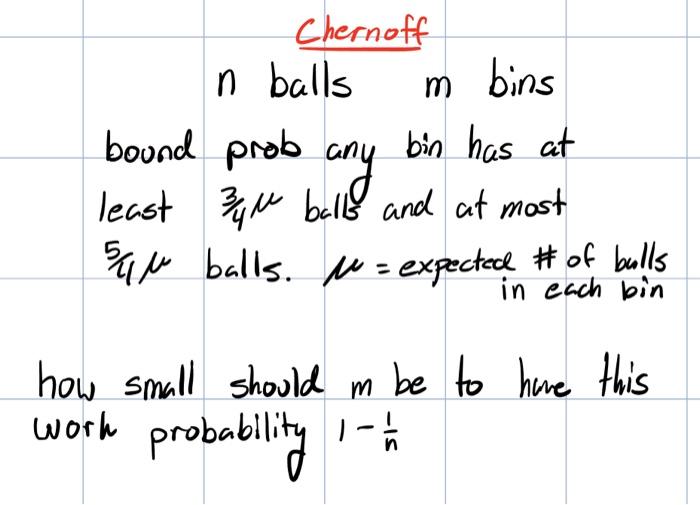 Chernoff
n balls m bins
bound prob any bin has at
least 3/4 μ balls and at most
5/4 μ balls. μ = expected # of balls
in each bin
how small should m be to have this
work probability 1 - 1/n